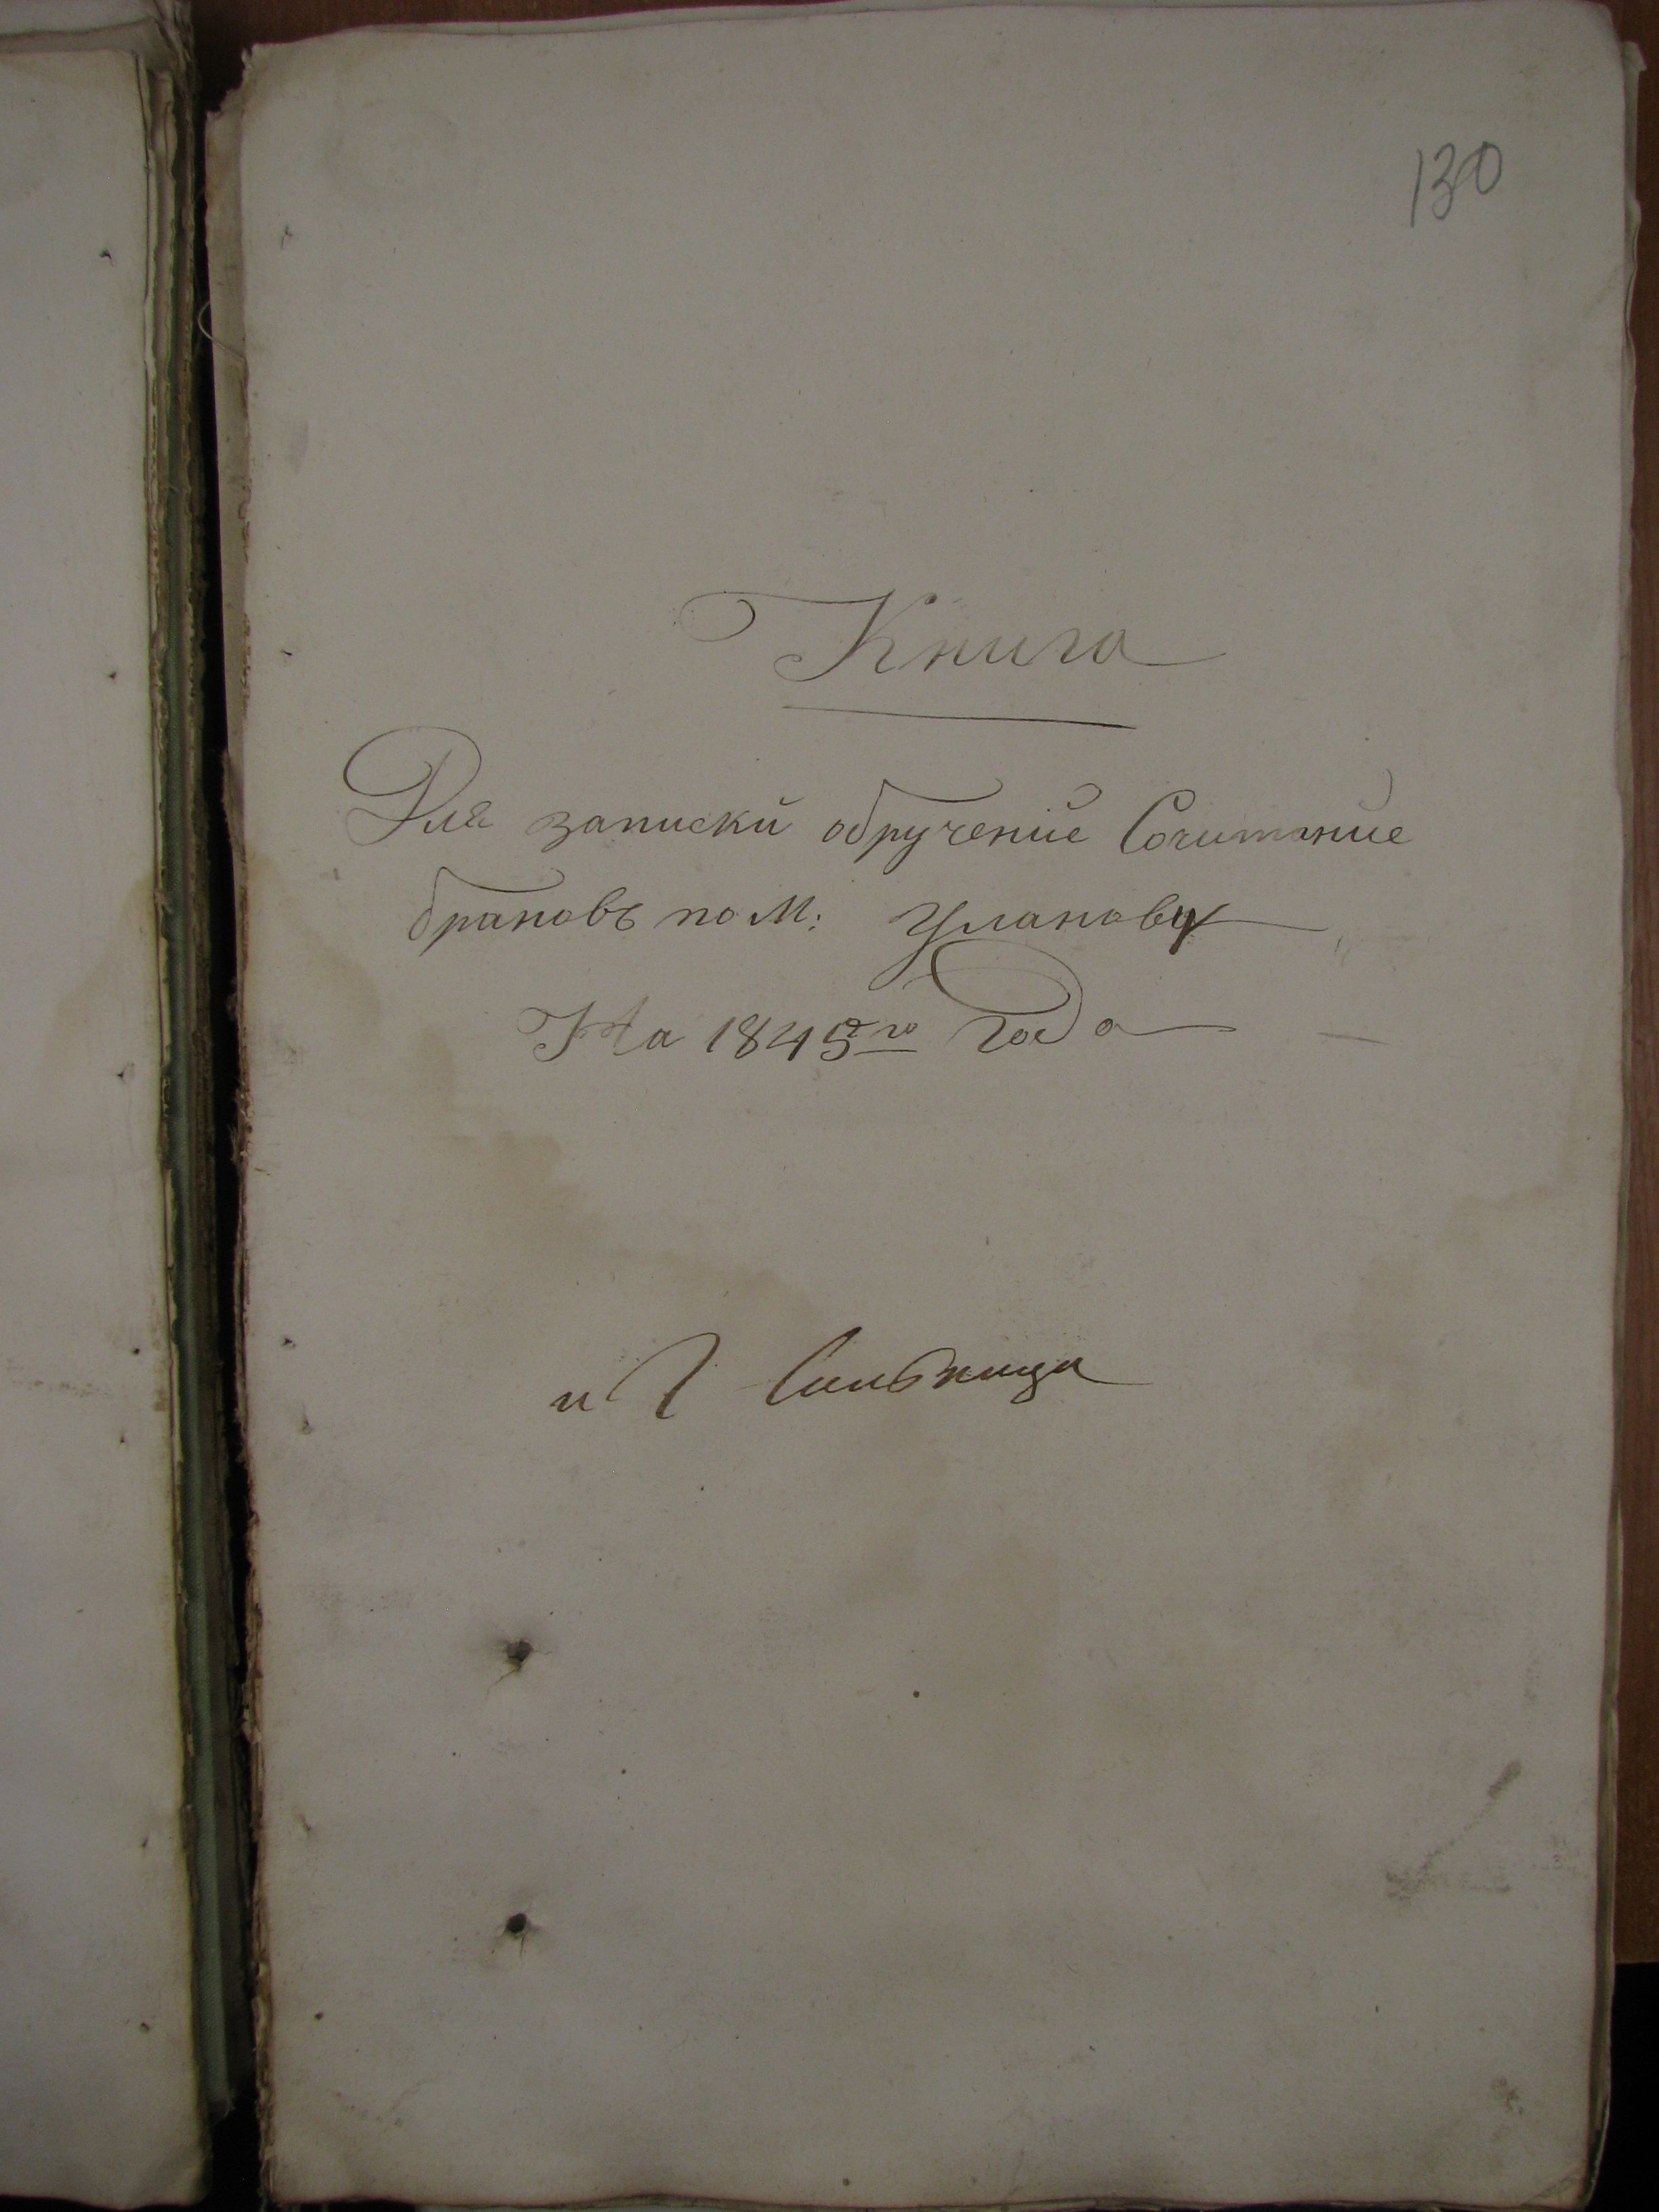 130
Книга
Для записки обручение Сочитание
браковъ по М: Уланову
На 1845го Года
и Г